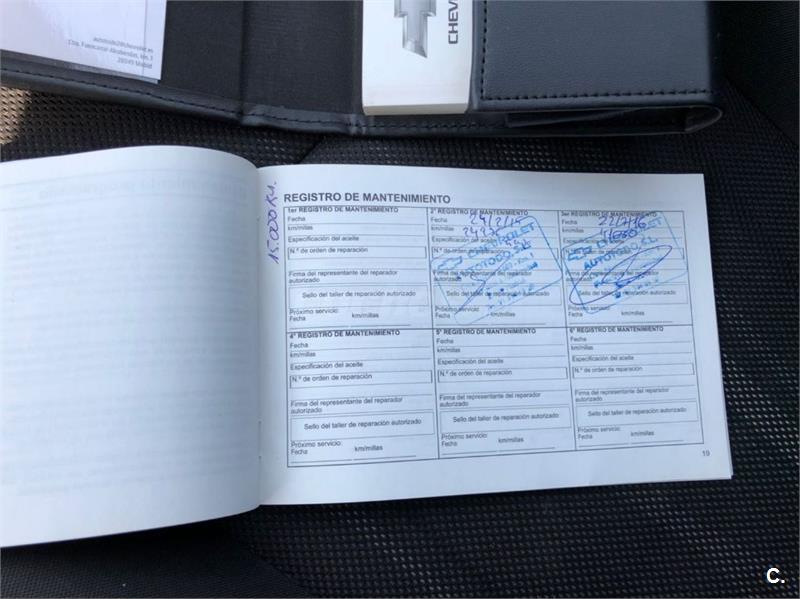 automoto2@chevrolet.es
Ctra. Fuencarral-Alcobendas, km. 3
28049 Madrid
CHEV
15.000 Km.
REGISTRO DE MANTENIMIENTO
1er REGISTRO DE MANTENIMIENTO
Fecha
km/millas
Especificación del aceite
N.º de orden de reparación
Firma del representante del reparador
autorizado
Sello del taller de reparación autorizado
Próximo servicio:
Fecha km/millas
2º REGISTRO DE MANTENIMIENTO
Fecha 24/2/15
km/millas
Especificación
CHEVROLET
Firma del representante del reparador
autorizado
Sello del taller de reparación autorizado
Próximo servicio:
Fecha km/millas
3er REGISTRO DE MANTENIMIENTO
Fecha 22/7/16
km/millas
Especificación
AUTOTODO S.L.
Firma del representante del reparador
autorizado
Sello del taller de reparación autorizado
Próximo servicio:
Fecha km/millas
4º REGISTRO DE MANTENIMIENTO
Fecha
km/millas
Especificación del aceite
N.º de orden de reparación
Firma del representante del reparador
autorizado
Sello del taller de reparación autorizado
Próximo servicio:
Fecha km/millas
5º REGISTRO DE MANTENIMIENTO
Fecha
km/millas
Especificación del aceite
N.º de orden de reparación
Firma del representante del reparador
autorizado
Sello del taller de reparación autorizado
Próximo servicio:
Fecha km/millas
6º REGISTRO DE MANTENIMIENTO
Fecha
km/millas
Especificación del aceite
N.º de orden de reparación
Firma del representante del reparador
autorizado
Sello del taller de reparación autorizado
Próximo servicio:
Fecha km/millas
19
C.